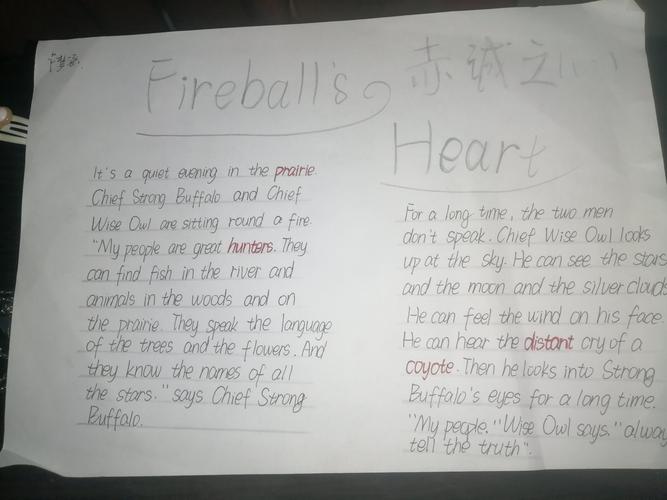 Fireball's
赤诚之心
Heart
It's a quiet evening in the prairie.
Chief Strong Buffalo and Chief
Wise Owl are sitting round a fire.
"My people are great hunters. They
can find fish in the river and
animals in the woods and on
the prairie. They speak the language
of the trees and the flowers. And
they know the names of all
the stars." says Chief Strong
Buffalo.
For a long time, the two men
don't speak. Chief Wise Owl looks
up at the sky. He can see the stars
and the moon and the silver clouds
He can feel the wind on his face.
He can hear the distant cry of a
coyote. Then he looks into Strong
Buffalo's eyes for a long time.
"My people." Wise Owl says. "alway
tell the truth".